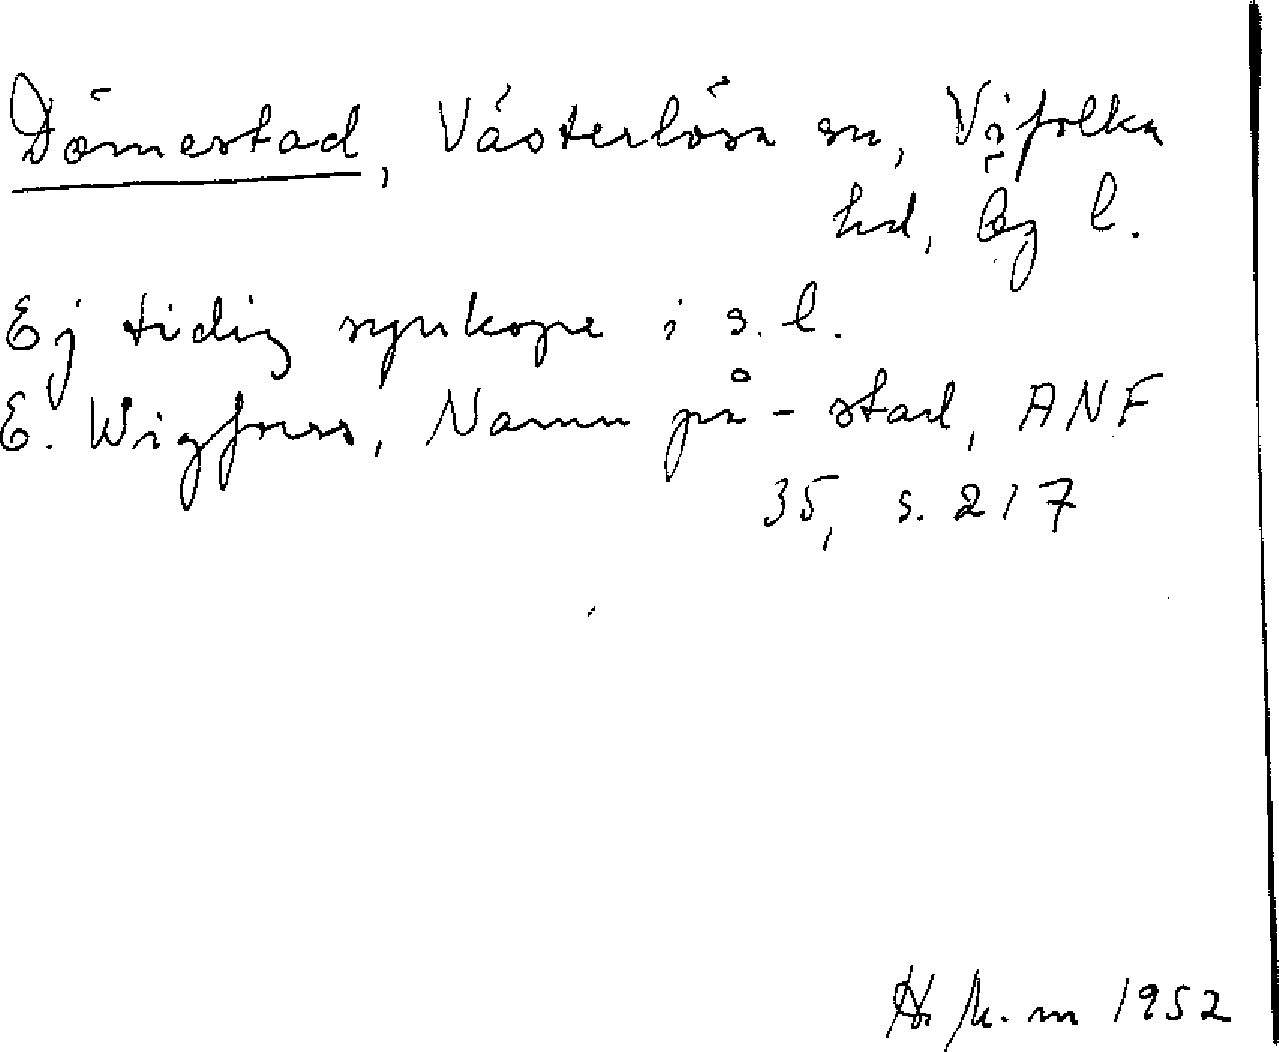 Dömestad, Västerlösa sn, Vifolka
hd, Ög l.
Ej tidig synkope i s. l.
E. Wigforss, Namn på -stad, ANF
35, s. 217
1952